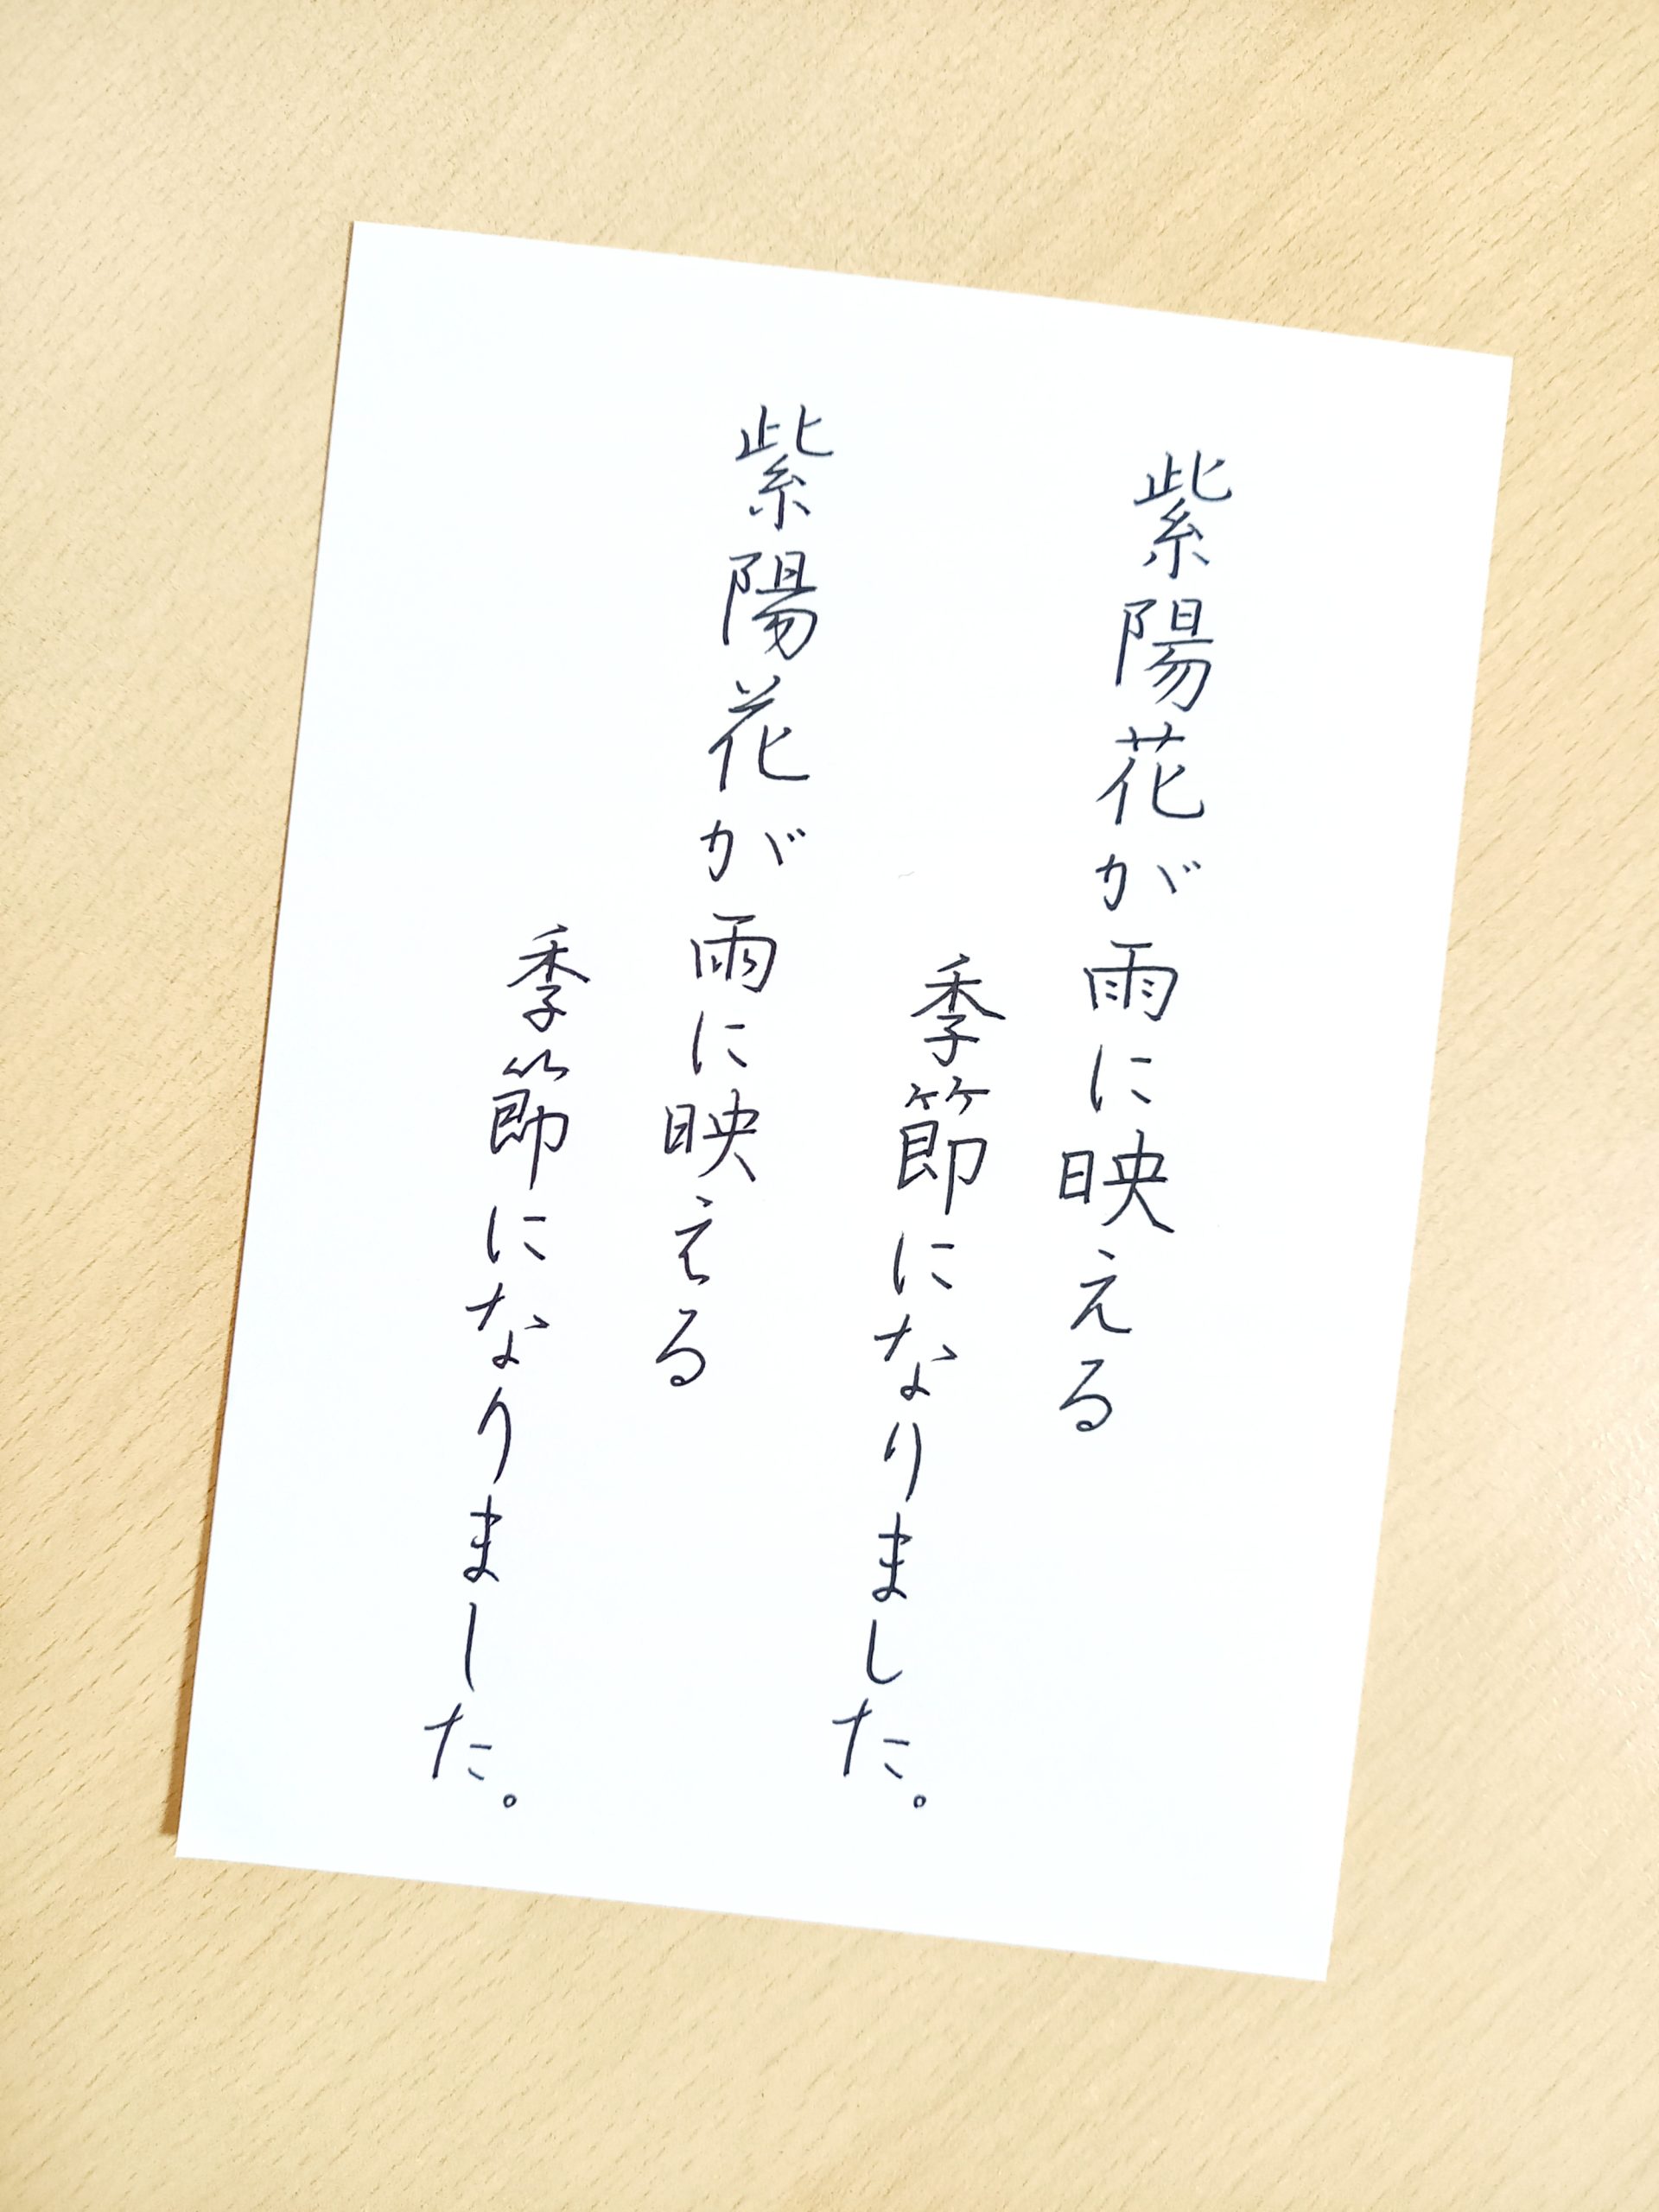 紫陽花が雨に映える
季節になりました。
紫陽花が雨に映える
季節になりました。